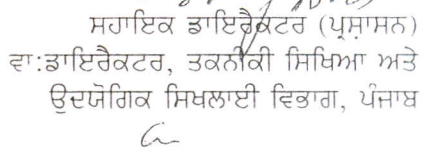 ਸਹਾਇਕ ਡਾਇਰੈਕਟਰ (ਪ੍ਰਸ਼ਾਸਨ)
ਵਾ:ਡਾਇਰੈਕਟਰ, ਤਕਨੀਕੀ ਸਿਖਿਆ ਅਤੇ
ਉਦਯੋਗਿਕ ਸਿਖਲਾਈ ਵਿਭਾਗ, ਪੰਜਾਬ